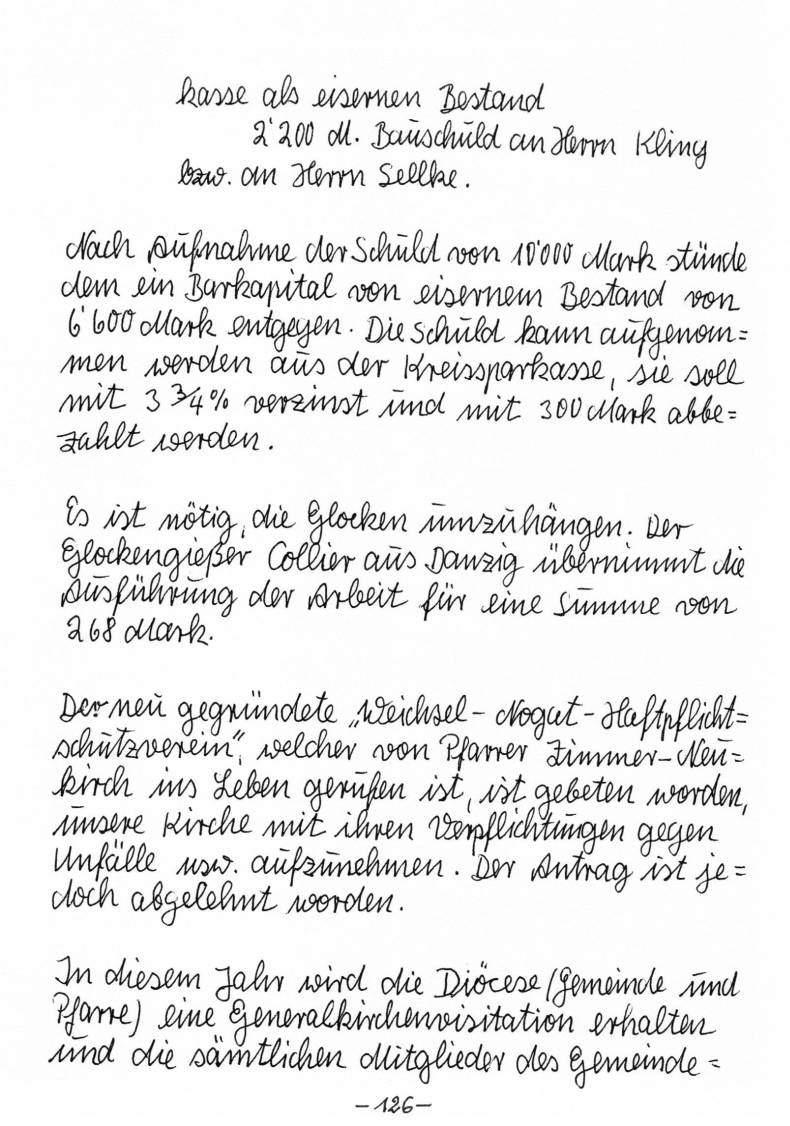 kasse als eisernen Bestand
2'200 M. Bauschuld an Herrn Kling
bzw. an Herrn Sellke.
Nach Aufnahme der Schuld von 10'000 Mark stünde
dem ein Barkapital von eisernem Bestand von
6'600 Mark entgegen. Die Schuld kann aufgenom=
men werden aus der Kreissparkasse, sie soll
mit 3 3/4 % verzinst und mit 300 Mark abbe=
zahlt werden.
Es ist nötig, die Glocken umzuhängen. Der
Glockengießer Collier aus Danzig übernimmt die
Ausführung der Arbeit für eine Summe von
268 Mark.
Der neu gegründete „Weichsel-Nogat-Haftpflicht=
schutzverein", welcher von Pfarrer Zimmer-Neu=
kirch ins Leben gerufen ist, ist gebeten worden,
unsere Kirche mit ihren Verpflichtungen gegen
Unfälle usw. aufzunehmen. Der Antrag ist je=
doch abgelehnt worden.
In diesem Jahr wird die Diöcese (Gemeinde und
Pfarre) eine Generalkirchenvisitation erhalten
und die sämtlichen Mitglieder des Gemeinde=
-126-